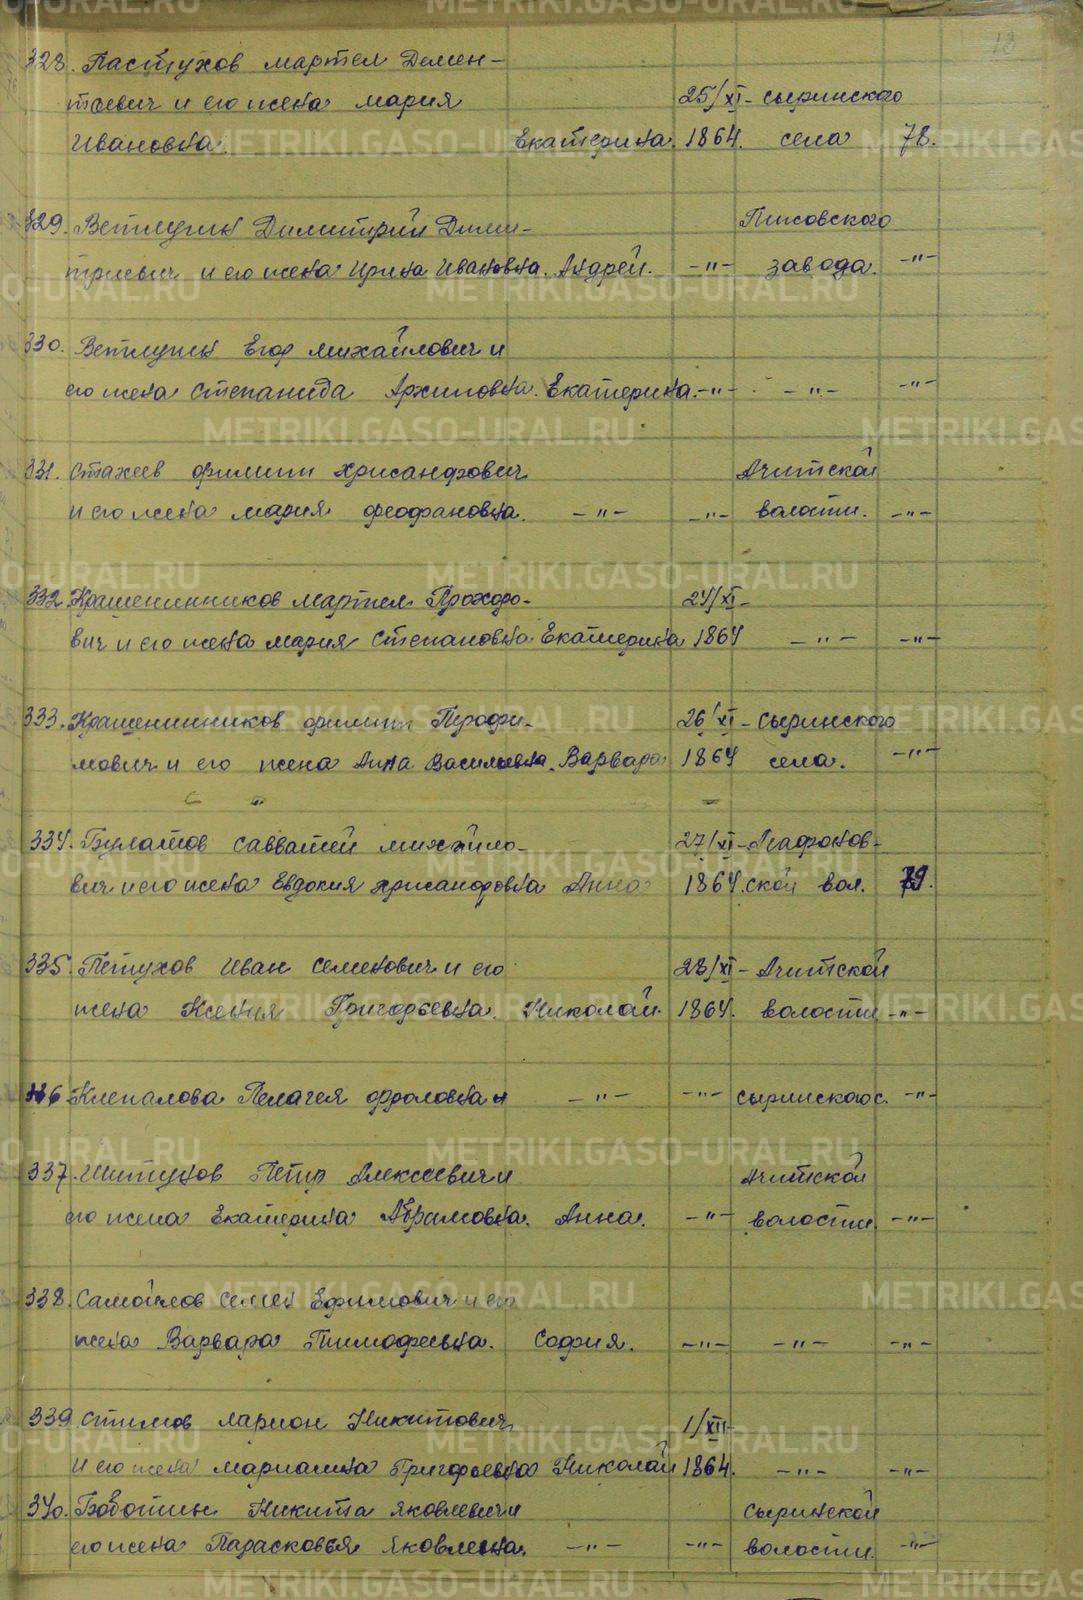 18
328. Пастухов Мартел Демен-
тьевич и его жена Мария 25/XI- Сыринского
Ивановна. Екатерина. 1864. села 78.
329. Ветлугин Димитрий Дими- Тисовского
триевич и его жена Ирина Ивановна. Андрей. -"- завода. -"-
330. Ветлугин Егор Михайлович и
его жена Степанида Архиповна. Екатерина. -"- -"- -"-
331. Стахеев Филипп Хрисанфович Ачитской
и его жена Мария Феофановна. -"- -"- волости. -"-
332. Крашенинников Мартел Прохоро- 24/XI-
вич и его жена Мария Степановна. Екатерина 1864 -"- -"-
333. Крашенинников Филипп Перфи- 26/XI- Сыринского
мович и его жена Анна Васильевна. Варвара 1864 села. -"-
334. Булатов Савватей Михайло- 27/XI- Агафонов-
вич и его жена Евдокия Хрисанфовна Анна 1864. ской вол. 79.
335. Петухов Иван Семенович и его 28/XI- Ачитской
жена Ксения Григорьевна. Николай. 1864. волости -"-
336 Клепалова Пелагея Фроловна и -"- -"- Сыринского с. -"-
337. Шитунов Петр Алексеевич и Ачитской
его жена Екатерина Абрамовна. Анна. -"- волости. -"-
338. Самойлов Семен Ефимович и его
жена Варвара Тимофеевна. София. -"- -"- -"-
339. Ларион Никитович 1/XII-
и его жена Мариамна Григорьевна Николай 1864. -"- -"-
340. Боботин Никита Яковлевич и Сыринской
его жена Парасковья Яковлевна. -"- -"- волости. -"-
METRIKI.GASO-URAL.RU